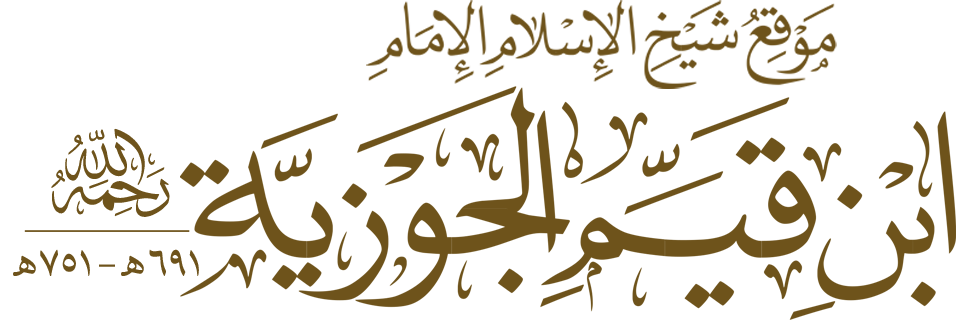 مَوْقِعُ شَيْخِ الإِسْلَامِ الإِمَامِ
ابْنِ قَيِّمِ الجَوْزِيَّةِ
رَحِمَهُ اللَّهُ
٦٩١هـ - ٧٥١هـ